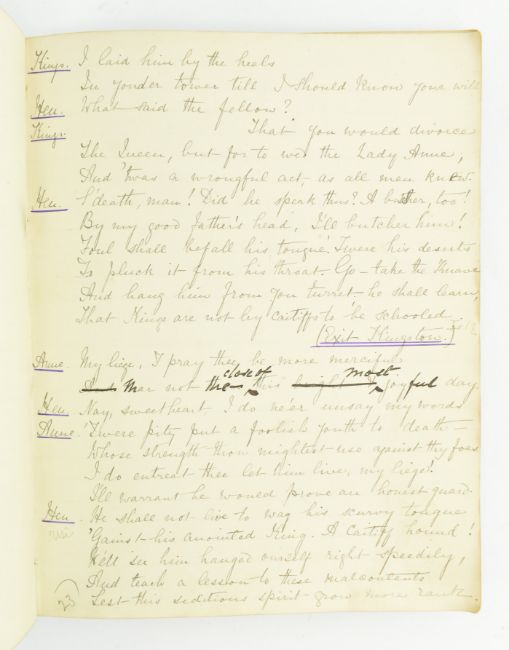 Kings. I laid him by the heels
In yonder tower till I should know your will
Hen. What said the fellow?
Kings. That you would divorce
The Queen, but for to wed the Lady Anne,
And 'twas a wrongful act, as all men knew.
Hen. S'death, man! Did he speak thus? A brother, too!
By my good father's head, I'll butcher him!
Foul shall befall his tongue. 'Twere his deserts
To pluck it from his throat. Go - take the knave
And hang him from yon turret - he shall learn,
That Kings are not by caitiffs to be schooled.
(Exit Kingston.)
Anne. My liege, I pray thee be more merciful
Mar not the close of this most joyful day.
Hen. Nay, sweetheart, I do ne'er unsay my words
Anne. 'Twere pity put a foolish youth to death -
Whose strength thou mightest use against thy foes
I do entreat thee let him live, my liege!
I'll warrant he would prove an honest guard.
Hen. He shall not live to wag his scurvy tongue
'Gainst his anointed King. A caitiff hound!
We'll see him hanged ourself right speedily,
And teach a lesson to these malcontents
Lest this seditious spirit grow more rank.
23)